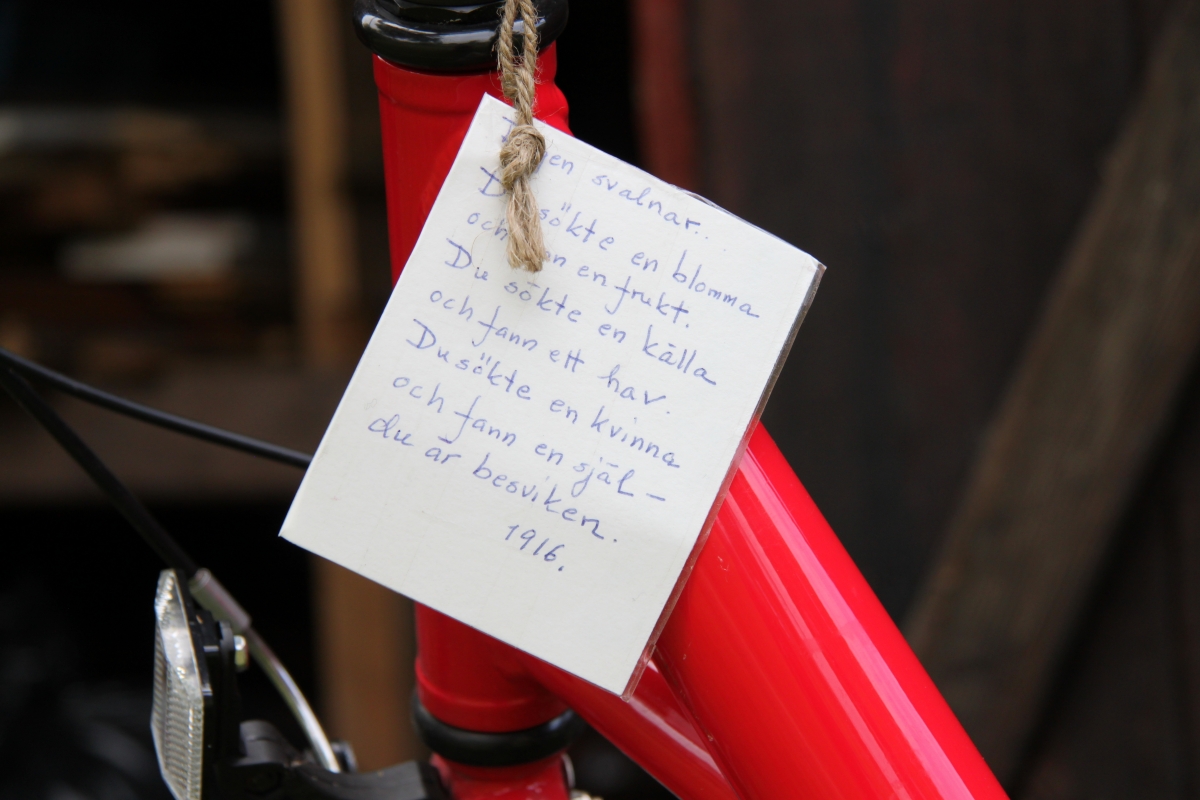 svalnar..
sökte en blomma
och en frukt.
Du sökte en källa
och fann ett hav.
Du sökte en kvinna
och fann en själ –
du är besviken.
1916.